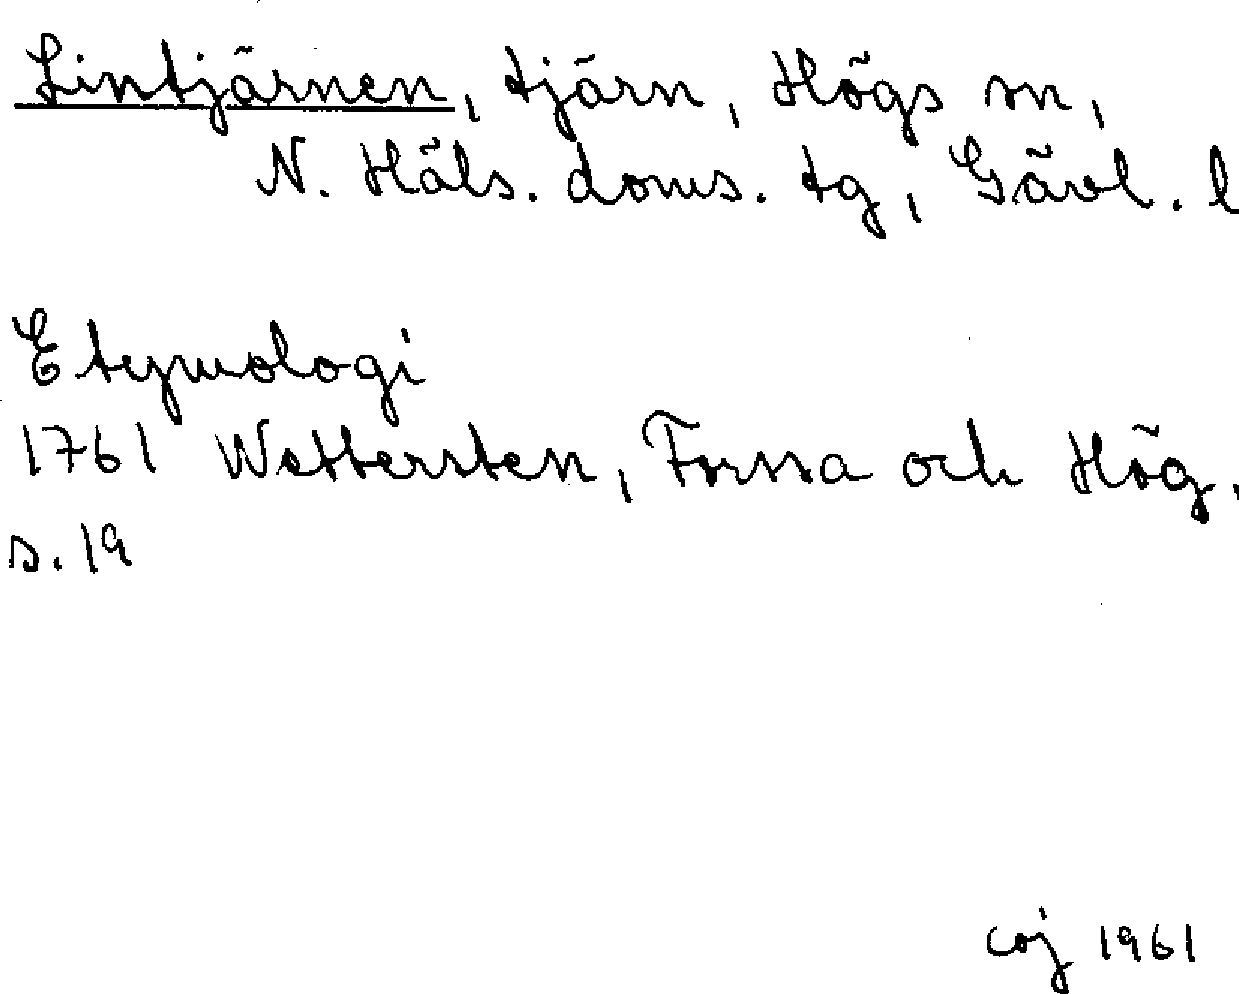 Lintjärnen, tjärn, Högs sn,
N. Häls. doms. tg, Gävl. l
Etymologi
1761 Wettersten, Forssa och Hög,
s. 19
coj 1961